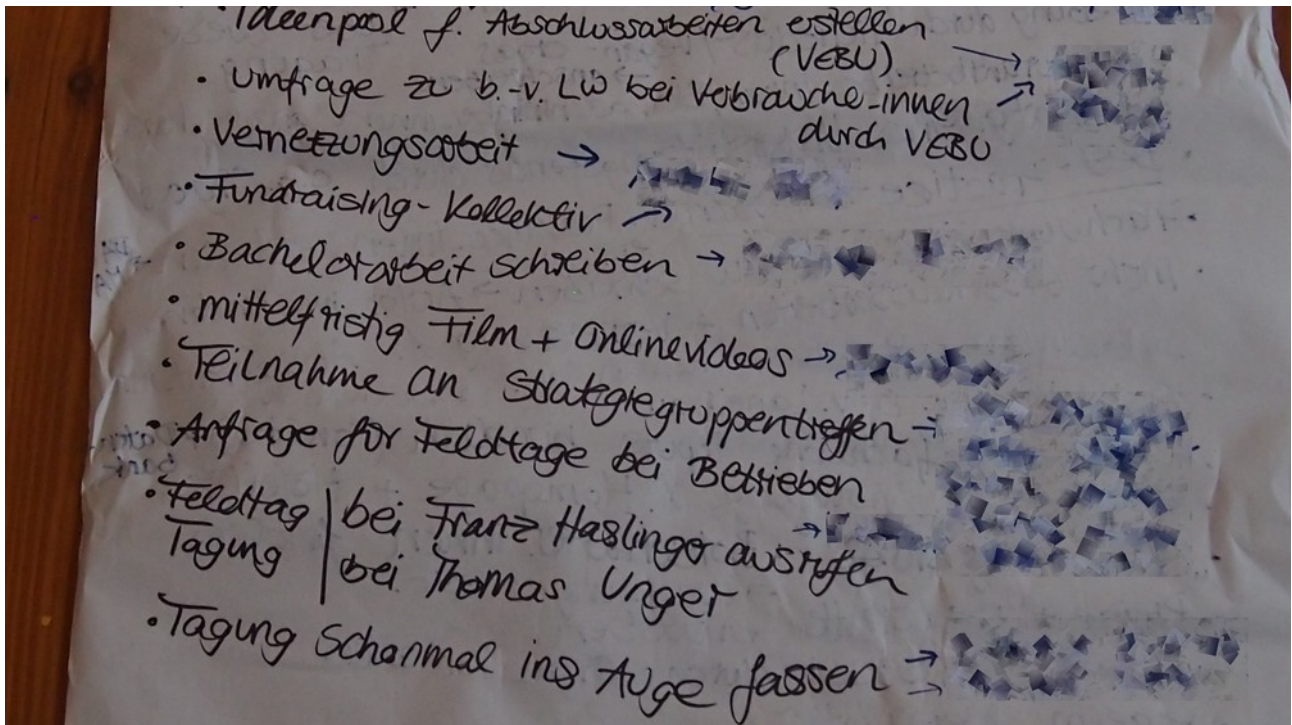 · Ideenpool f. Abschlussarbeiten erstellen
(VEBU) →
· Umfrage zu b.-v. LW bei Verbraucher_innen →
durch VEBU
· Vernetzungsarbeit →
· Fundraising-Kollektiv →
· Bachelorarbeit schreiben →
· mittelfristig Film + Onlinevideos →
· Teilnahme an Strategiegruppentreffen →
· Anfrage für Feldtage bei Betrieben
· Feldtag | bei Franz Haslinger ausrufen →
Tagung | bei Thomas Unger
· Tagung schonmal ins Auge fassen →